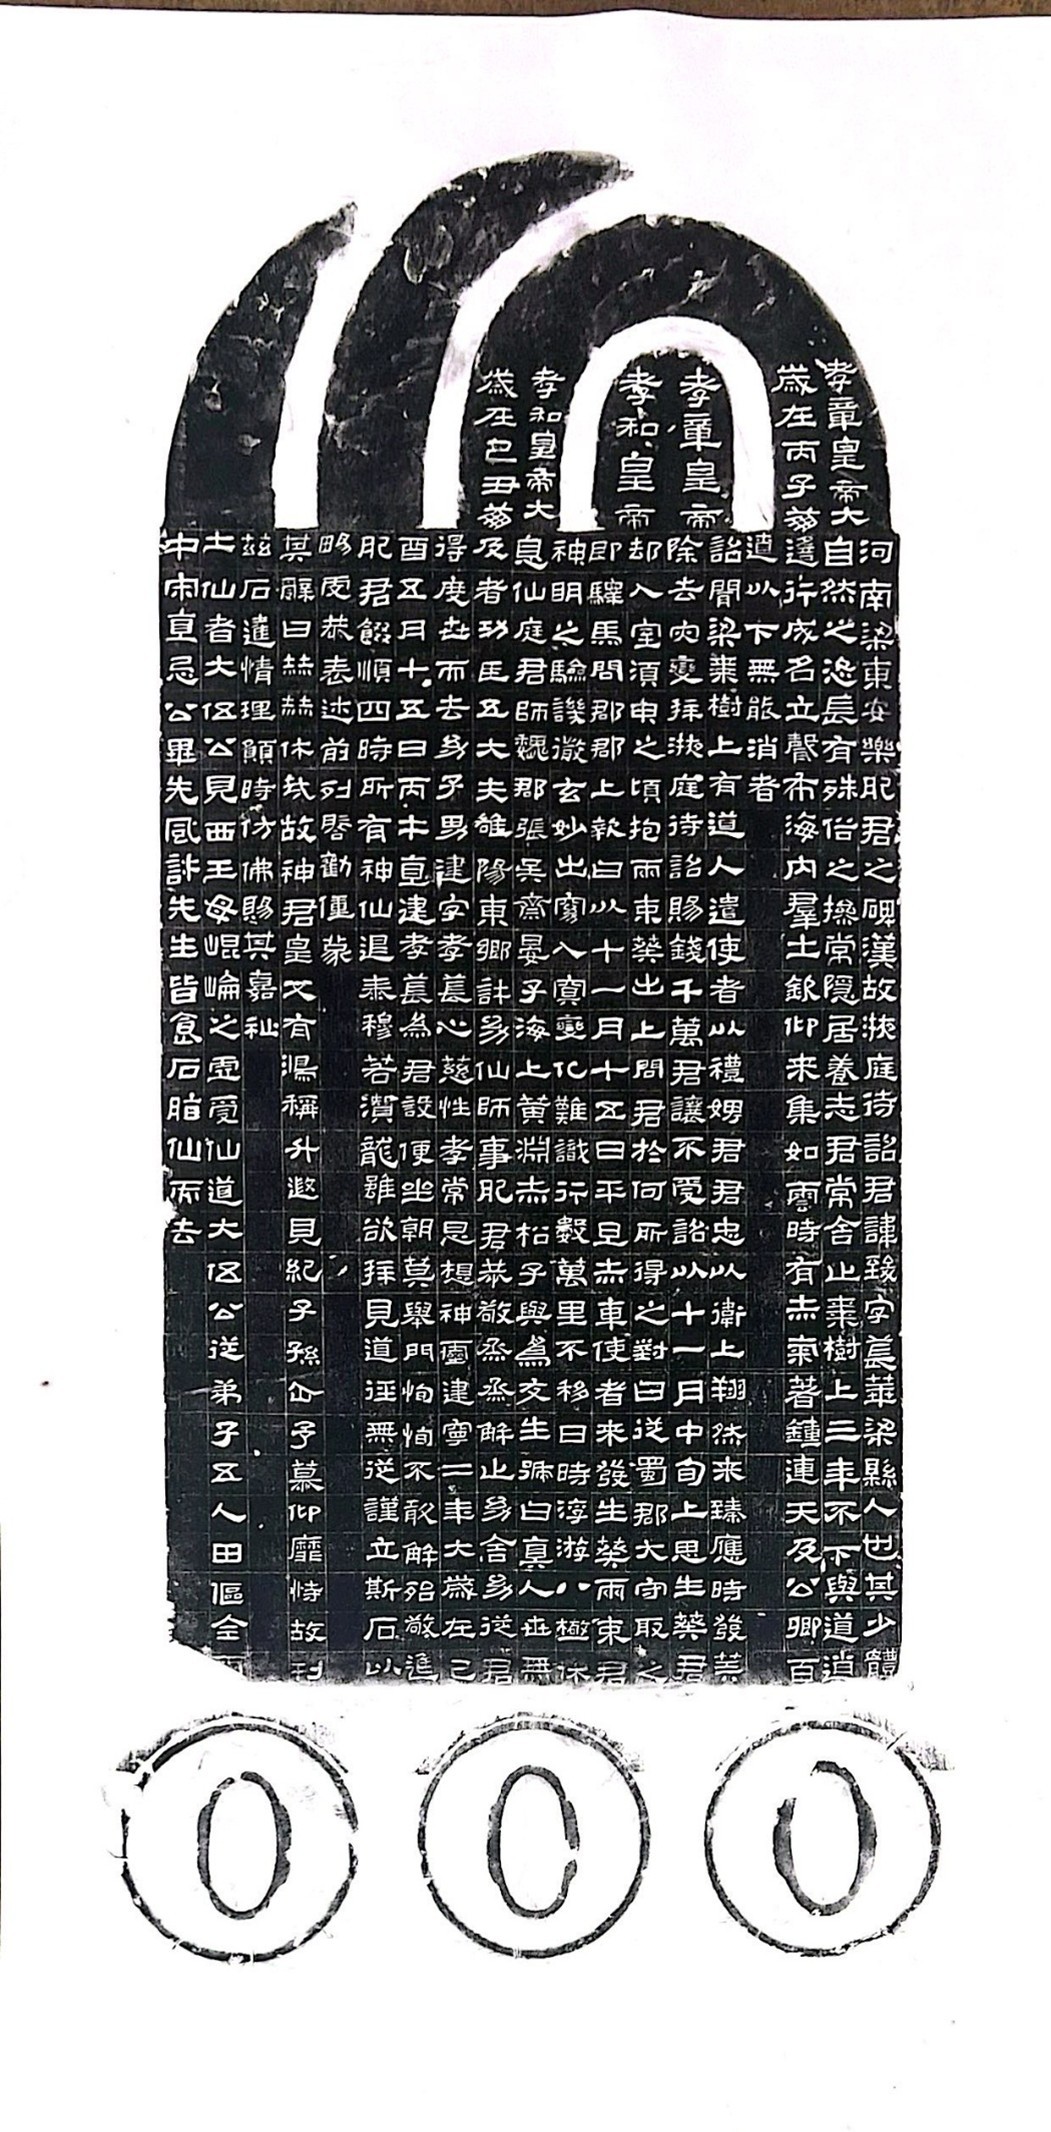 孝章皇帝大
歲在丙子崩
孝章皇帝
孝和皇帝
孝和皇帝大
歲在己丑崩
河南梁東安樂肥君之碑漢故掖庭待詔君諱致字萇華梁縣人也其少體
自然之恣長有殊俗之操常隱居養志君常舍止棗樹上三年不下與道逍
遙行成名立聲布海内羣士欽仰来集如雲時有赤氣著鐘連天及公卿百
遼以下無能消者
詔聞梁棗樹上有道人遣使者以禮娉君君忠以衛上翔然来臻應時發筭
除去灾變拜掖庭待詔賜錢千萬君讓不受詔以十一月中旬上思生葵君
却入室須臾之頃抱兩束葵出上問君於何所得之對曰從蜀郡大守取之
即驛馬問郡郡上報曰以十一月十五日平旦赤車使者来發生葵兩束君
神明之驗譏徹玄妙出窈入冥變化難識行數萬里不移日時浮游八極休
息仙庭君師魏郡張吳齋晏子海上黃淵赤松子與為友生號曰真人世無
及者功臣五大夫雒陽東鄉許幼仙師事肥君恭敬烝烝解止幼舍幼從君
得度世而去幼子男建字孝萇心慈性孝常思想神靈建寧二年大歲在己
酉五月十五日丙午直建孝萇為君設便坐朝莫舉門恂恂不敢解殆敬進
肥君餟順四時所有神仙退泰穆若潛龍雖欲拜見道徑無從謹立斯石以
暢虔恭表述前列啓勸僮蒙
其辭曰赫赫休哉故神君皇又有鴻稱升遐見紀子孫企予慕仰靡恃故刊
兹石達情理願時仿佛賜其嘉祉
土仙者大伍公見西王母崐崘之虛受仙道大伍公從弟子五人田傴全雨
中宋直忌公畢先風許先生皆食石脂仙而去